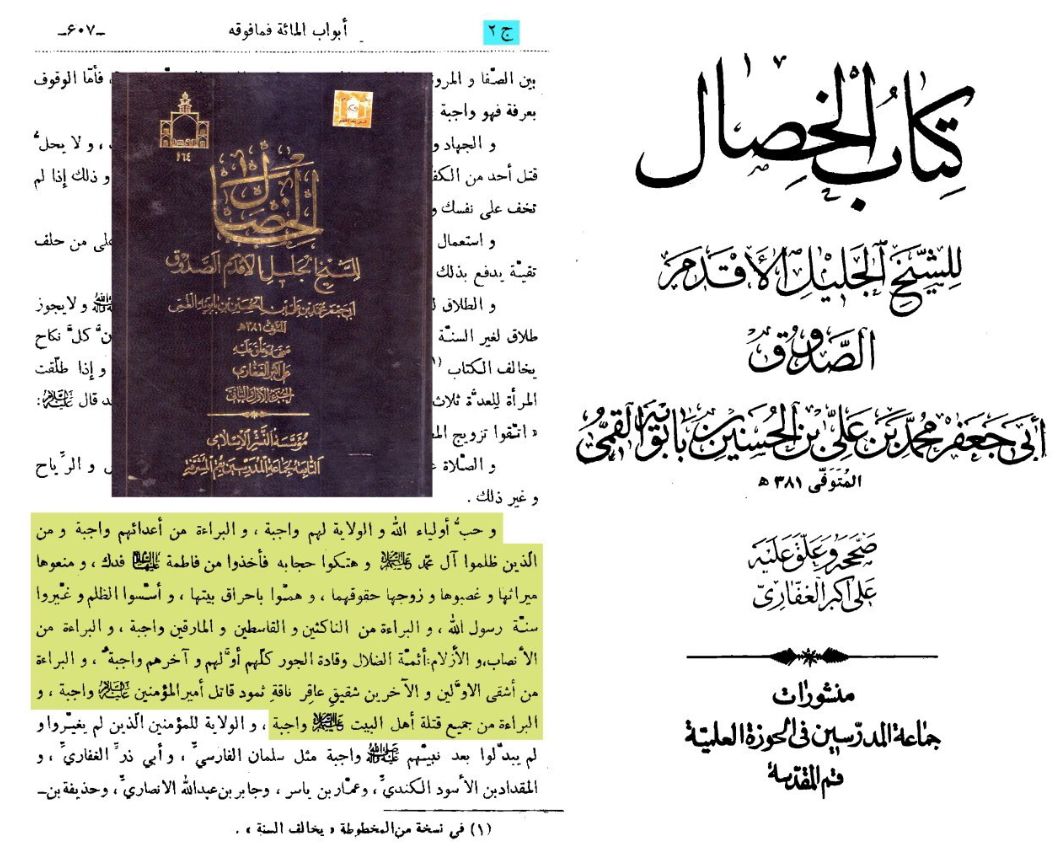 كتاب الخصال
للشيخ الجليل الأقدم
الصدوق
أبي جعفر محمد بن علي بن الحسين بن بابويه القمي
المتوفى ۳۸۱ ه
صححه وعلق عليه
علي أكبر الغفاري
منشورات
جماعة المدرسين في الحوزة العلمية
قم المقدسة
ج ۲ أبواب المائة فمافوقه ـ۶۰۷ـ
بين الصّفا و المرو فأمّا الوقوف
بعرفة فهو واجبة
و الجهاد و ، و لا يحلّ
قتل أحد من الكف و ذلك إذا لم
تخف على نفسك و
و استعمال لى من حلف
تقيّة يدفع بذلك
و الطلاق و لايجوز
طلاق لغير السنّة كلّ نكاح
يخالف الكتاب (۱) و إذا طلّقت
المرأة للعدّة ثلاث قال عليه السلام :
« اتّقوا تزويج
و الصّلاة و الرّياح
و غير ذلك .
و حبُّ أولياء الله و الولاية لهم واجبة ، و البراءة من أعدائهم واجبة و من
الّذين ظلموا آل محمّد عليهم السلام و هتكوا حجابه فأخذوا من فاطمة عليها السلام فدك ، و منعوها
ميراثها و غصبوها و زوجها حقوقهما ، و همّوا باحراق بيتها ، و أسّسوا الظلم و غيّروا
سنّة رسول الله ، و البراءة من الناكثين و القاسطين و المارقين واجبة ، و البراءة من
الأنصاب، و الأزلام: أئمّة الضلال وقادة الجور كلّهم أوّلهم و آخرهم واجبةٌ ، و البراءة
من أشقى الاوّلين و الآخرين شقيق عاقر ناقة ثمود قاتل أمير المؤمنين عليه السلام واجبة ، و
البراءة من جميع قتلة أهل البيت عليهم السلام واجبة ، و الولاية للمؤمنين الّذين لم يغيّروا و
لم يبدّلوا بعد نبيّهم صلى الله عليه وآله واجبة مثل سلمان الفارسيِّ ، و أبي ذرّ الغفاريِّ ، و
المقدادبن الأسود الكنديِّ، وعمّاربن ياسر، وجابربن عبدالله الانصاريِّ، و حذيفةبن‌ـ
(۱) فى نسخة من المخطوطة « يخالف السنة » .
۱۶۴
الخصال
للشيخ الجليل الأقدم الصدوق
أبي جعفر محمد بن علي بن الحسين بن بابويه القمي
المتوفى ۳۸۱ ه
صححه وعلق عليه
علي أكبر الغفاري
الجزء الأول والثاني
مؤسسة النشر الإسلامي
التابعة لجماعة المدرسين بقم المشرفة